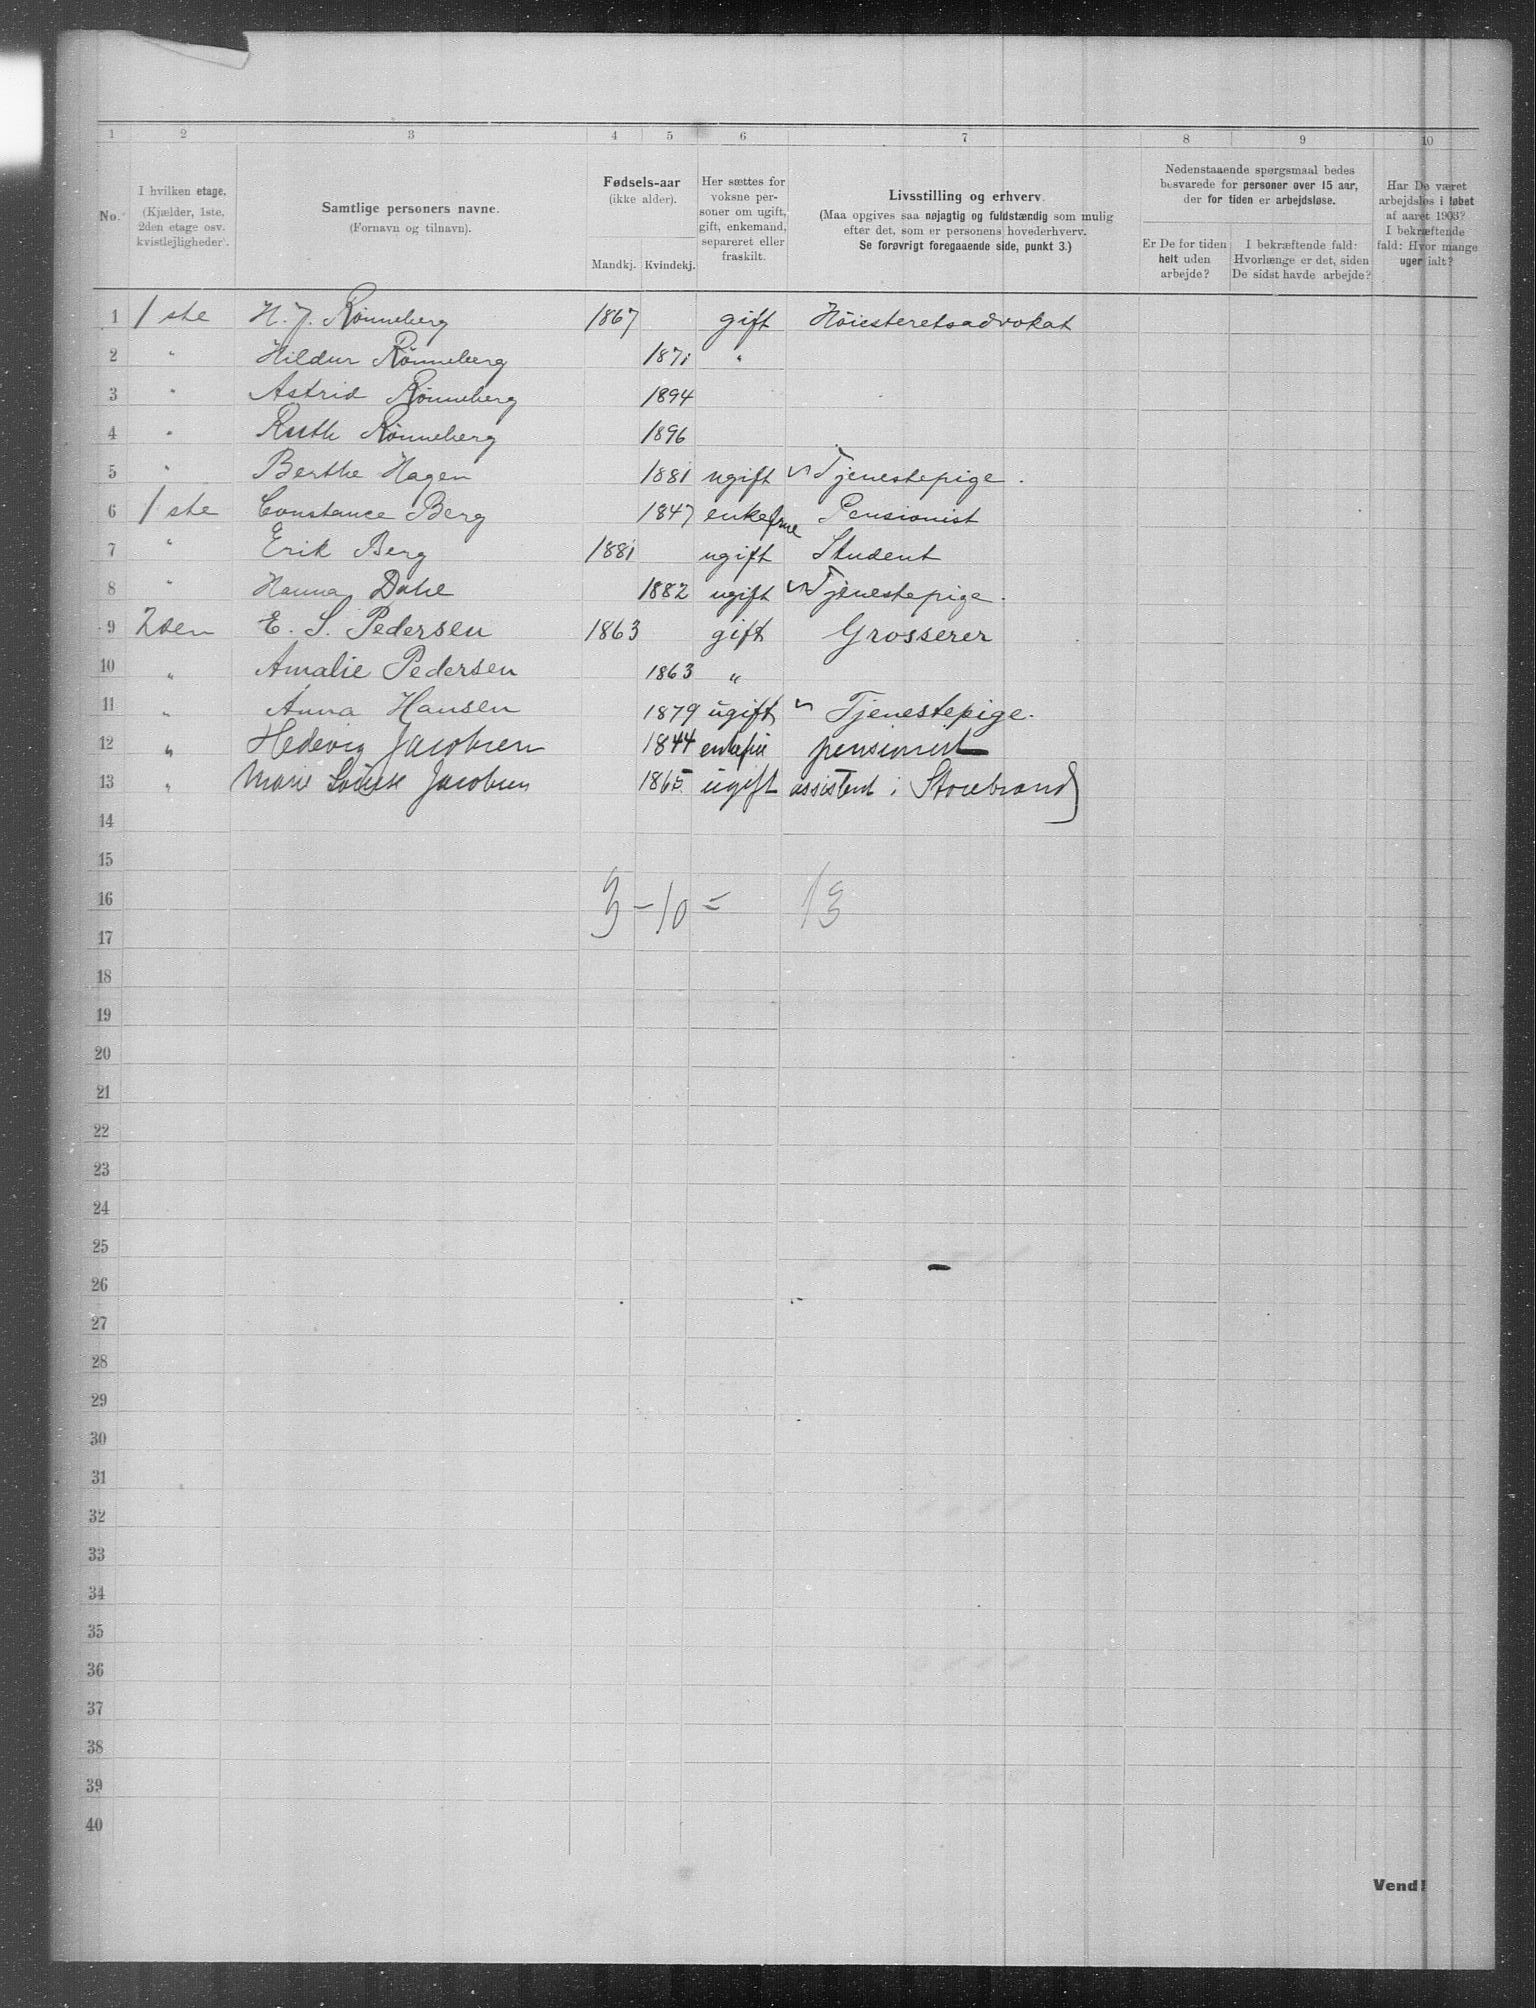 1 2 3 4 5 6 7 8 9 10
No. I hvilken etage. (Kjælder, 1ste, 2den etage osv. kvistleiligheder). Samtlige personers navne. (Fornavn og tilnavn). Fødsels-aar (ikke alder). Mandkj. Kvindekj. Her sættes for voksne personer om ugift, gift, enkemand, separeret eller fraskilt. Livsstilling og erhverv. (Maa opgives saa nøjagtig og fuldstændig som mulig efter det, som er personens hovederhverv. Se forøvrigt foregaaende side, punkt 3.) Nedenstaaende spørgsmaal bedes besvarede for personer over 15 aar, der for tiden er arbejdsløse. Er De for tiden helt uden arbejde? I bekræftende fald: Hvorlænge er det, siden De sidst havde arbejde? Har De været arbejdsløs i løbet af aaret 1903? I bekræftende fald: Hvor mange uger ialt?
1 1ste H. J. Rønneberg 1867 gift Höiesteretsadvokat
2 " Hildur Rønneberg 1871 "
3 " Astrid Rønneberg 1894
4 " Ruth Rønneberg 1896
5 " Berthe Hagen 1881 ugift Tjenestepige.
6 1ste Constance Berg 1847 enkefrue Pensionist
7 " Erik Berg 1881 ugift Student
8 " Hanna Dahl 1882 ugift Tjenestepige.
9 2den E. S. Pedersen 1863 gift Grosserer
10 " Amalie Pedersen 1863 "
11 " Anna Hansen 1879 ugift Tjenestepige.
12 " Hedevig Jacobsen 1844 enkefru pensionist
13 " Marie Louise Jacobsen 1865 ugift assistent i Storebrand
14
15
16 3 – 10 = 13
17
18
19
20
21
22
23
24
25
26
27
28
29
30
31
32
33
34
35
36
37
38
39
40
Vend!